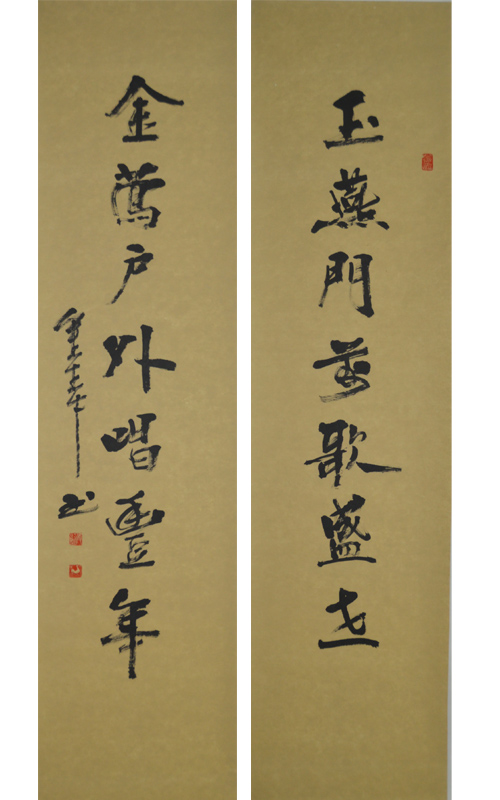 玉燕門前歌盛世
金鶯戶外唱豐年